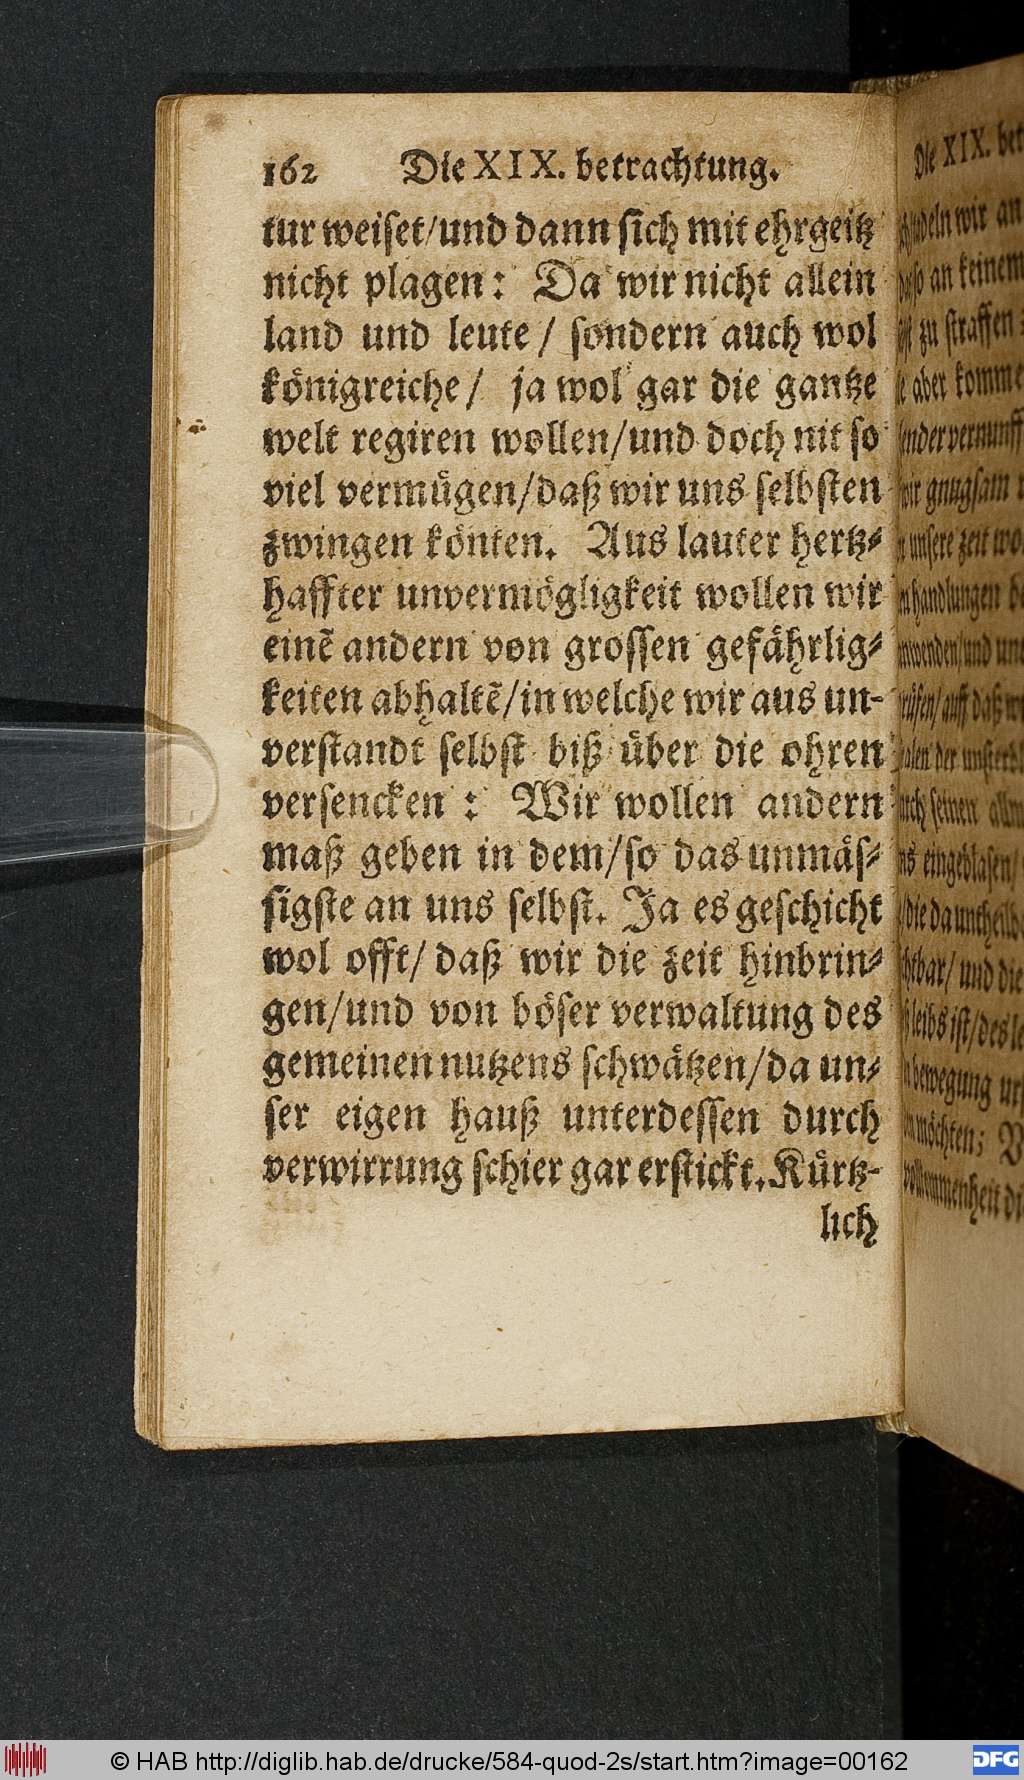 162 Die XIX. betrachtung.
tur weiset/und dann sich mit ehrgeitz
nicht plagen: Da wir nicht allein
land und leute/ sondern auch wol
königreiche/ ja wol gar die gantze
welt regiren wollen/und doch nit so
viel vermügen/daß wir uns selbsten
zwingen könten. Aus lauter hertz-
haffter unvermögligkeit wollen wir
einẽ andern von grossen gefährlig-
keiten abhaltẽ/in welche wir aus un-
verstandt selbst biß über die ohren
versencken: Wir wollen andern
maß geben in dem/so das unmäs-
sigste an uns selbst. Ja es geschicht
wol offt/ daß wir die zeit hinbrin-
gen/und von böser verwaltung des
gemeinen nutzens schwätzen/da un-
ser eigen hauß unterdessen durch
verwirrung schier gar erstickt. Kürtz-
lich
Die XIX.
wir
an keinem
zu straffen
aber
gnugsam
unsere zeit
handlungen
und
auff daß
der
seinen
eingeblasen/
die da
und die
leibs ist/des
bewegung
möchten;
© HAB http://diglib.hab.de/drucke/584-quod-2s/start.htm?image=00162
DFG